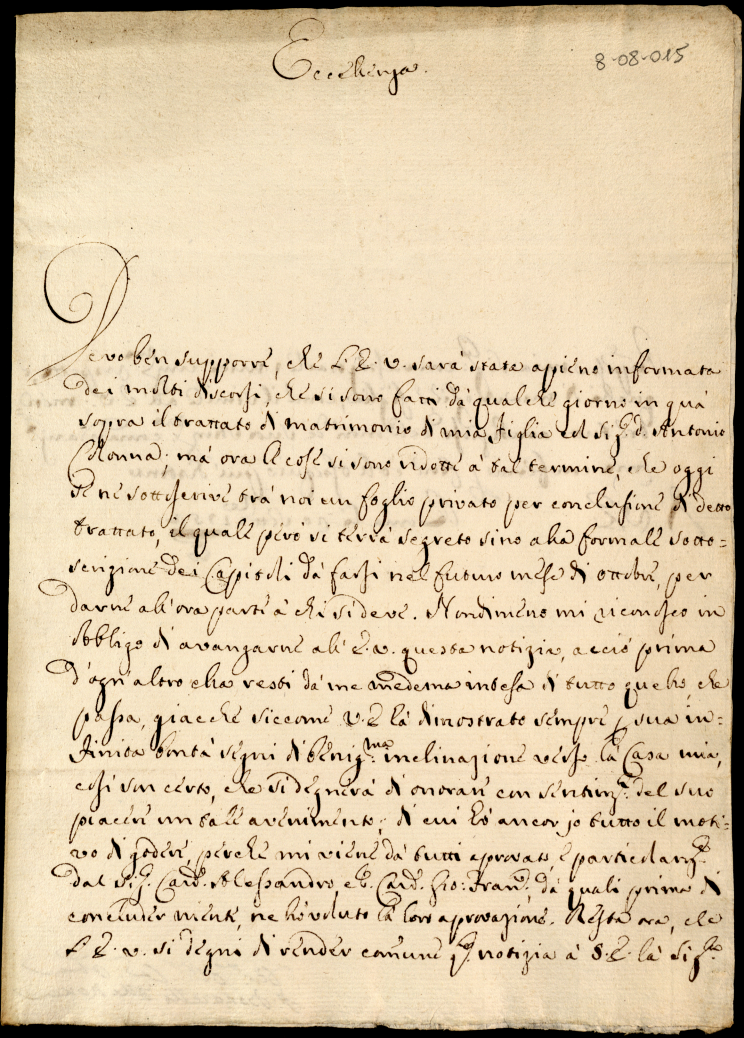 Eccellenza.
8-08-015
Devo ben supporre, che l'E. V. sarà stata apieno informata
dei molti discorsi, che si sono fatti dà qualche giorno in quà
sopra il trattato di matrimonio di mia figlia col Sig.r d. Antonio
Colonna; mà ora le cose si sono ridotte à tal termine, che oggi
se ne sottoscrive trà noi un foglio privato per conclusione di detto
trattato, il quale però si terrà segreto sino alla formale sotto=
scrizione dei Capitoli dà farsi nel futuro mese di ottobre, per
darne all'ora parte à chi si deve. Nondimeno mi riconosco in
obbligo di avanzarne all'E. V. questa notizia, acciò prima
d'ogn'altro ella resti dà me medema intesa di tutto quello, che
passa, giacche siccome V. E. hà dimostrato sempre p sua in=
finita bontà segni di benig.ma inclinazione verso la Casa mia,
così son certo, che si degnerà di onorare con sentim.ti del suo
piacere un tale avenimento; di cui hò ancor io tutto il moti=
vo di godere, perche mi viene dà tutti aprovato, e particolarm.te
dal Sig.r Card. Alessandro, e Card. Gio: Fran.co dà quali prima di
concluder niente, ne hò voluto la loro aprovazione. Resta ora, che
l'E. V. si degni di render comune notizia à S. E. la Sig.ra